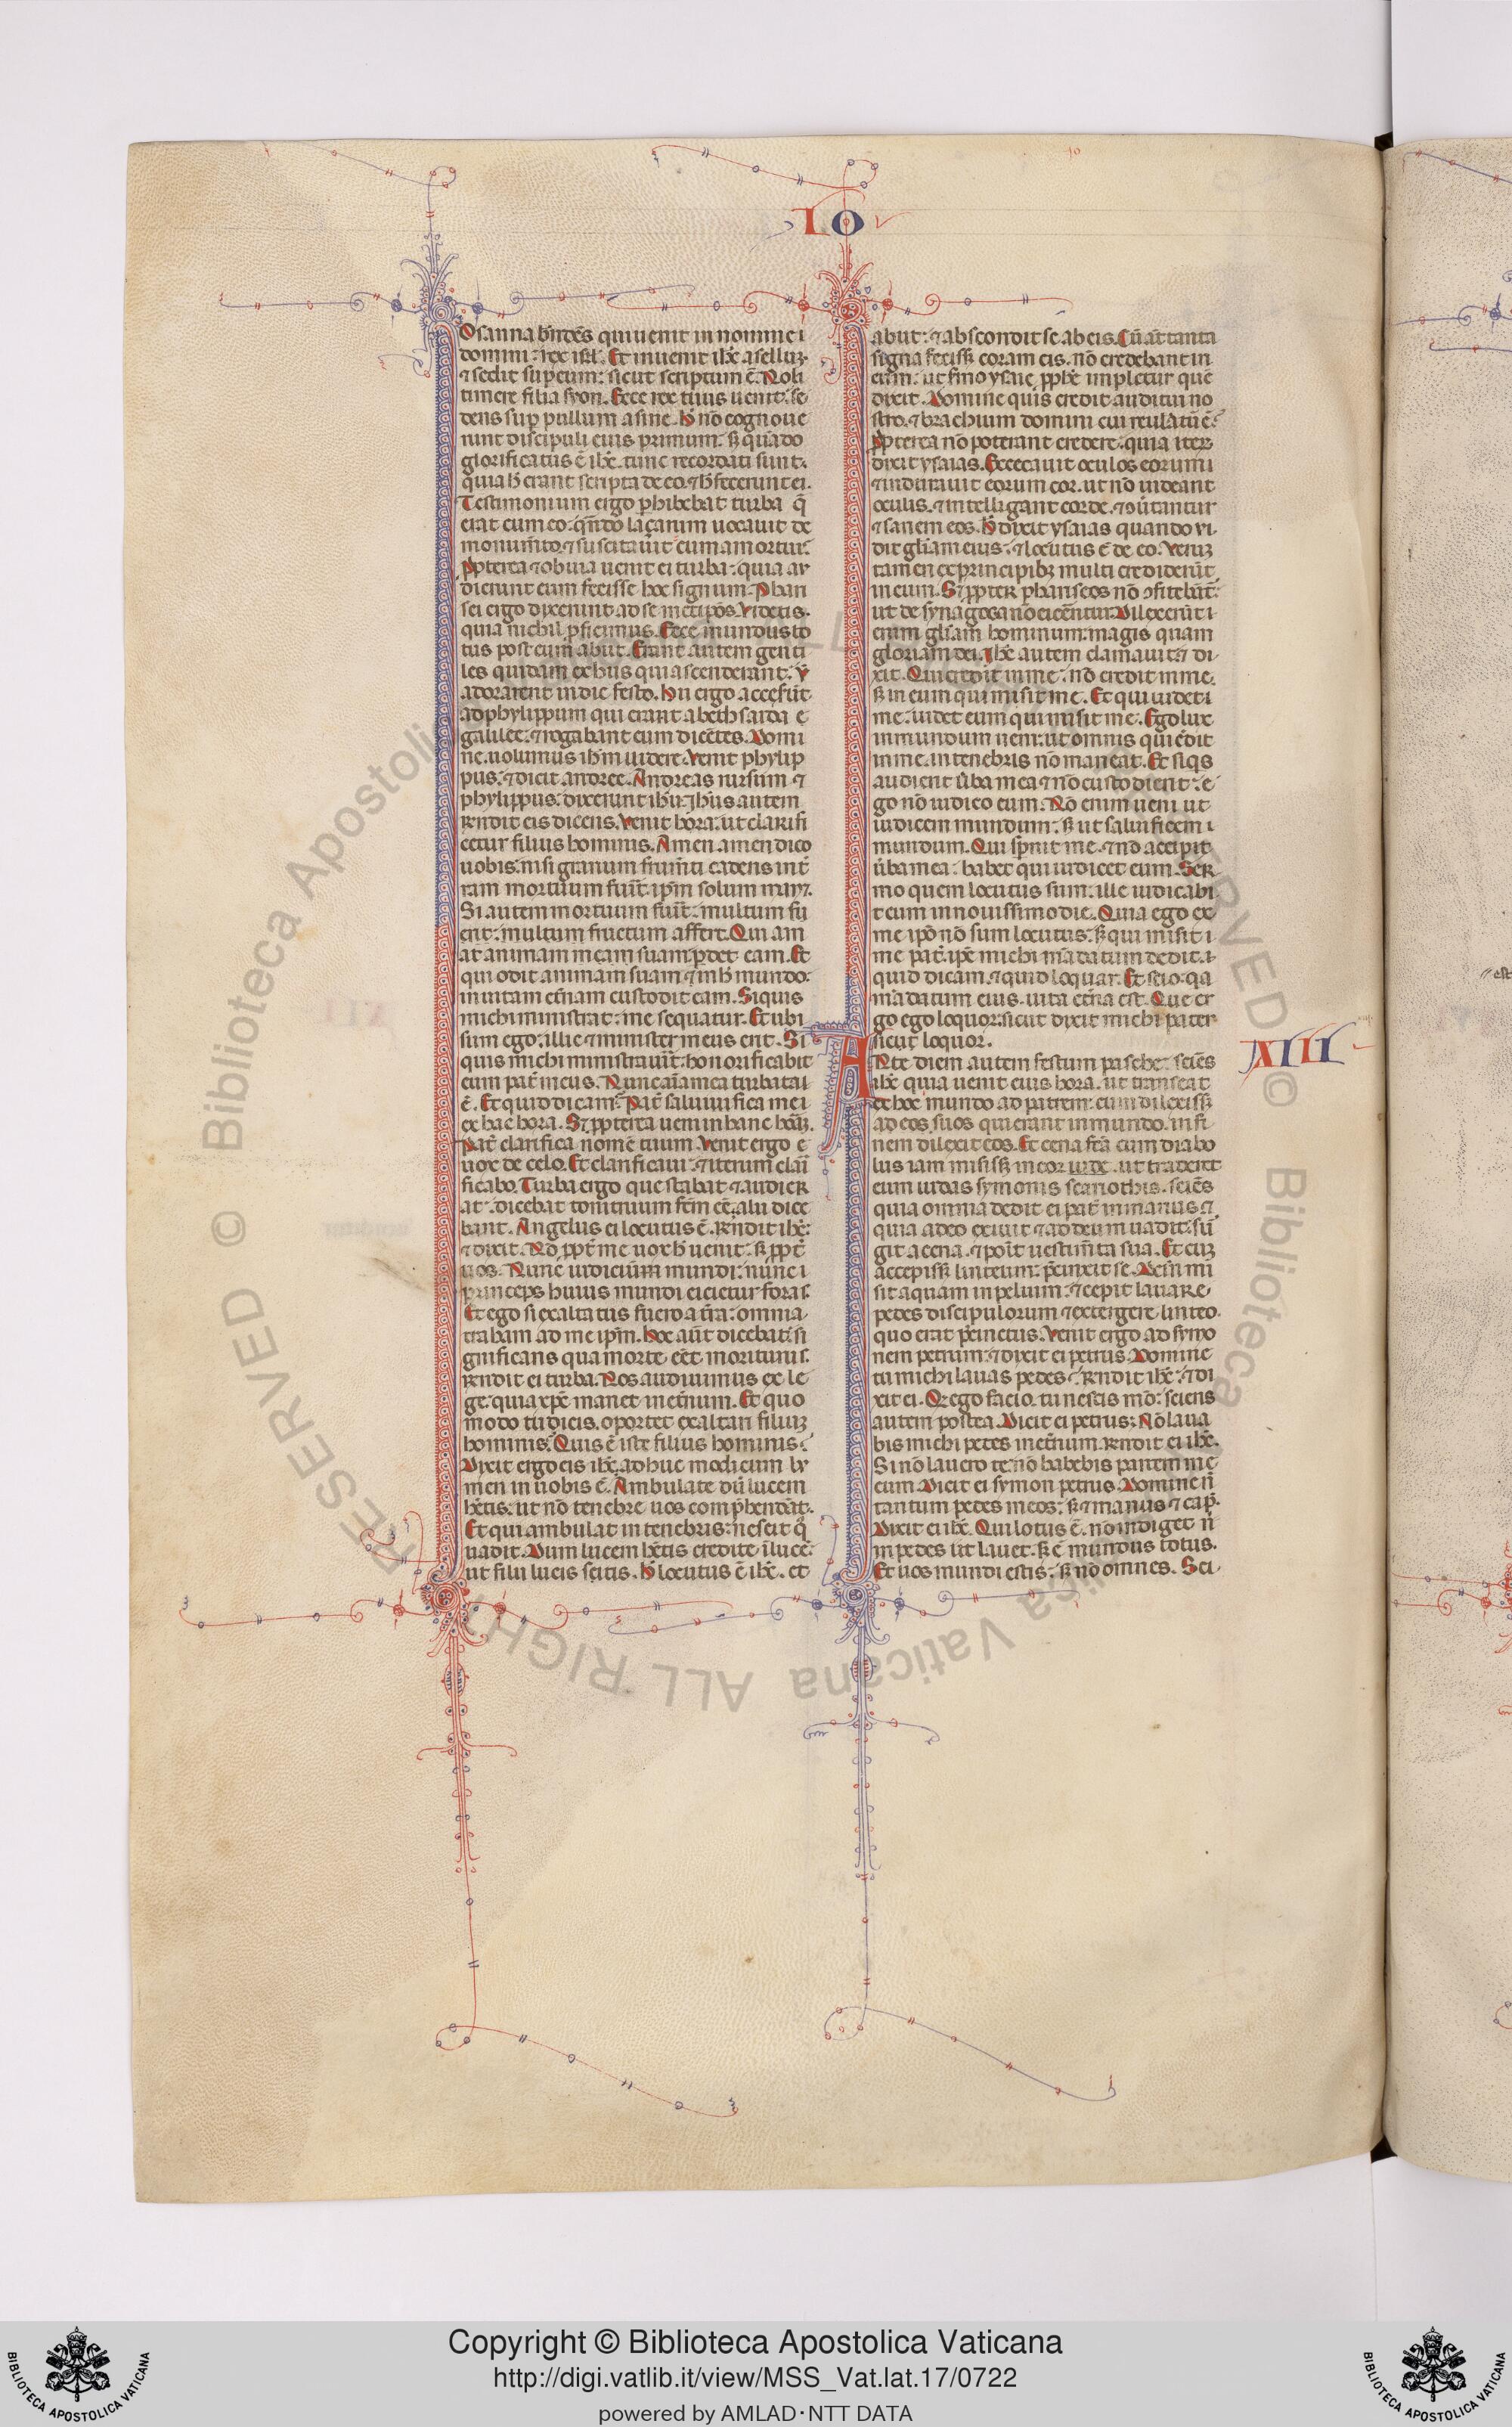 IO
Osanna bn̄dc̄s qui uenit in nomine
domini: rex isr̄l. Et inuenit ihc̄ asellum.
⁊ sedit sup eum: sicut scriptum ē. Noli
timere filia syon. Ecce rex tuus uenit: se
dens sup pullum asine. h̄ nō cognoue
runt discipuli eius primum: sꝫ quādo
glorificatus ē ihc̄. tunc recordati sunt.
quia h̄ erant scripta de eo. ⁊ h̄ fecerunt ei.
Testimonium ergo phibebat turba q̄
erat cum eo: qn̄do laçarum uocauit de
monum̄to. ⁊ suscitauit eum a mortuis.
Ppterea ⁊ obuia uenit ei turba: quia au
dierunt eum fecisse hoc signum. Phari
sei ergo dixerunt ad se metipōs. Videtis.
quia nichil pficimus. Ecce mundus to
tus post eum abiit. Erant autem genti
les quidam ex his qui ascenderant: ut
adorarent in die festo. hii ergo accesserūt
ad phylippum qui erant a bethsaida
galilee: ⁊ rogabant eum dicētes. Domi
ne. uolumus ihm̄ uidere. Venit phylip
pus: ⁊ dicit andree. Andreas rursum ⁊
phylippus: dixerunt ihū. Ihūs autem
rendit eis dicens. Venit hora: ut clarifi
cetur filius hominis. Amen amen dico
uobis: nisi granum frum̄ti cadens in t̄
ram mortuum fuīt: ipm̄ solum manꝫ.
Si autem mortuum fuīt: multum fu
erit: multum fructum affert. Qui am
at animam meam suam: pdet eam. Et
qui odit animam suam ⁊ in h̄ mundo:
in uitam etn̄am custodit eam. Si quis
michi ministrat: me sequatur. Et ubi
sum ego: illic ⁊ minister meus erit. Si
quis michi ministrauīt: honorificabit
eum pat̄ meus. Nunc aīa mea turbata
ē. Et quid dicam: Pat̄ saluuifica me
ex hac hora. Sꝫ ppterea ueni in hanc horā.
Pat̄ clarifica nomē tuum. Venit ergo
uox de celo. Et clarificaui: ⁊ iterum clari
ficabo. Turba ergo que stabat ⁊ audier
at: dicebat tonitruum fcm̄ cē. alii dice
bant. Angelus ei locutus ē. Rendit ihc̄:
⁊ dixit. Nō ppt̄ me uox h̄ uenit: sꝫ ppt̄
uos. Nunc iudicium mundi: nunc
princeps huius mundi eicietur foras.
Et ego si exaltatus fuero a t̄ra: omnia
traham ad me ipm̄. Hoc aūt dicebat: si
gnificans qua morte eēt moriturus.
Rendit ei turba. Nos audiuimus ex le
ge: quia xpc̄ manet inet̄num. Et quo
modo tu dicis. oportet exaltari filium
hominis: Quis ē iste filius hominis:
Dixit ergo eis ihc̄. adhuc modicum lu
men in uobis ē. Ambulate dū lucem
hētis: ut nō tenebre uos comphendāt.
Et qui ambulat in tenebris: nescit q̊
uadit. Dum lucem hētis credite ī lucē:
ut filii lucis sitis. h̄ locutus ē ihc̄. et
abiit: ⁊ abscondit se ab eis. Cū aūt tanta
signa fecissꝫ coram eis. nō credebant in
eum: ut sermo ysaie pphe impletur quē
dixit. Domine quis credit auditui no
stro. ⁊ brachium domini cui reulatū ē:
Ppterea nō poterant credere: quia iteꝝ
dixit ysaias. Excecauit oculos eorum
⁊ indurauit eorum cor. ut nō uideant
oculis. ⁊ intelligant corde. ⁊ ɔūtantur
⁊ sanem eos. h̄ dixit ysaias quando ui
dit gliām eius: ⁊ locutus ē de eo. Verum
tamen ex principibꝫ multi crediderūt
in eum. Sꝫ propter phariseos nō ɔfitebāt:
ut de synagoga nō eicērentur. Dilexerūt
enim gliām hominum: magis quam
gloriam dei. Ihc̄ autem clamauit ⁊ di
xit. Qui credit in me: nō credit in me.
sꝫ in eum qui misit me. Et qui uidet
me: uidet eum qui misit me. Ego lux
in mundum ueni: ut omnis qui c̄dit
in me. in tenebris nō maneat. Et siqs
audierit ūba mea ⁊ nō custodierit: e
go nō iudico eum. Nō enim ueni ut
iudicem mundum: sꝫ ut saluificem
mundum. Qui spnit me. ⁊ nō accipit
ūba mea: habet qui iudicet eum. Ser
mo quem locutus sum: ille iudicabi
t eum in nouissimo die. Quia ego ex
me ipō nō sum locutus: sꝫ qui misit
me pat̄. ipē michi mādatum dedit.
quid dicam. ⁊ quid loquar. Et scio: qa
mādatum eius. uita etn̄a est. Que er
go ego loquor: sicut dixit michi pater
sicut loquor.
XIII
ANte diem autem festum pasche: sciēs
ihc̄ quia uenit eius hora. ut transeat
de hoc mundo ad patrem: cum dilexissꝫ
ad eos suos qui erant in mundo. in fi
nem dilexit eos. Et cena fcā cum diabo
lus iam misissꝫ in cor iude. ut traderet
eum iudas symonis scariothis. sciēs
quia omnia dedit ei pat̄ in manus ⁊
quia a deo exiuit ⁊ ad deum uadit: sur
git a cena. ⁊ poīt uestim̄ta sua. Et cum
accepissꝫ linteum: pcinxit se. Dein̄ mi
sit aquam in peluim: ⁊ cepit lauare
pedes discipulorum ⁊ extergere linteo.
quo erat pcinctus. Venit ergo ad symo
nem petrum: ⁊ dixit ei petrus. Domine
tu michi lauas pedes: Rendit ihc̄: ⁊ di
xit ei. Qꝫ ego facio. tu nescis mō: sciens
autem postea. Dicit ei petrus: Nō laua
bis michi pedes inet̄num. Rendit ei ihc̄.
Si nō lauero te: nō habebis partem me
cum. Dicit ei symon petrus. Domine n̄
tantum pedes meos: sꝫ ⁊ manus ⁊ cap.
Dixit ei ihc̄. Qui lotus ē. nō indiget n̄
in pedes ut lauet. sꝫ ē mundus totus.
Et uos mundi estis: sꝫ nō omnes. Sci
© Biblioteca Apostolica Vaticana ALL RIGHTS RESERVED
Copyright © Biblioteca Apostolica Vaticana
http://digi.vatlib.it/view/MSS_Vat.lat.17/0722
powered by AMLAD·NTT DATA
BIBLIOTECA APOSTOLICA VATICANA
BIBLIOTECA APOSTOLICA VATICANA